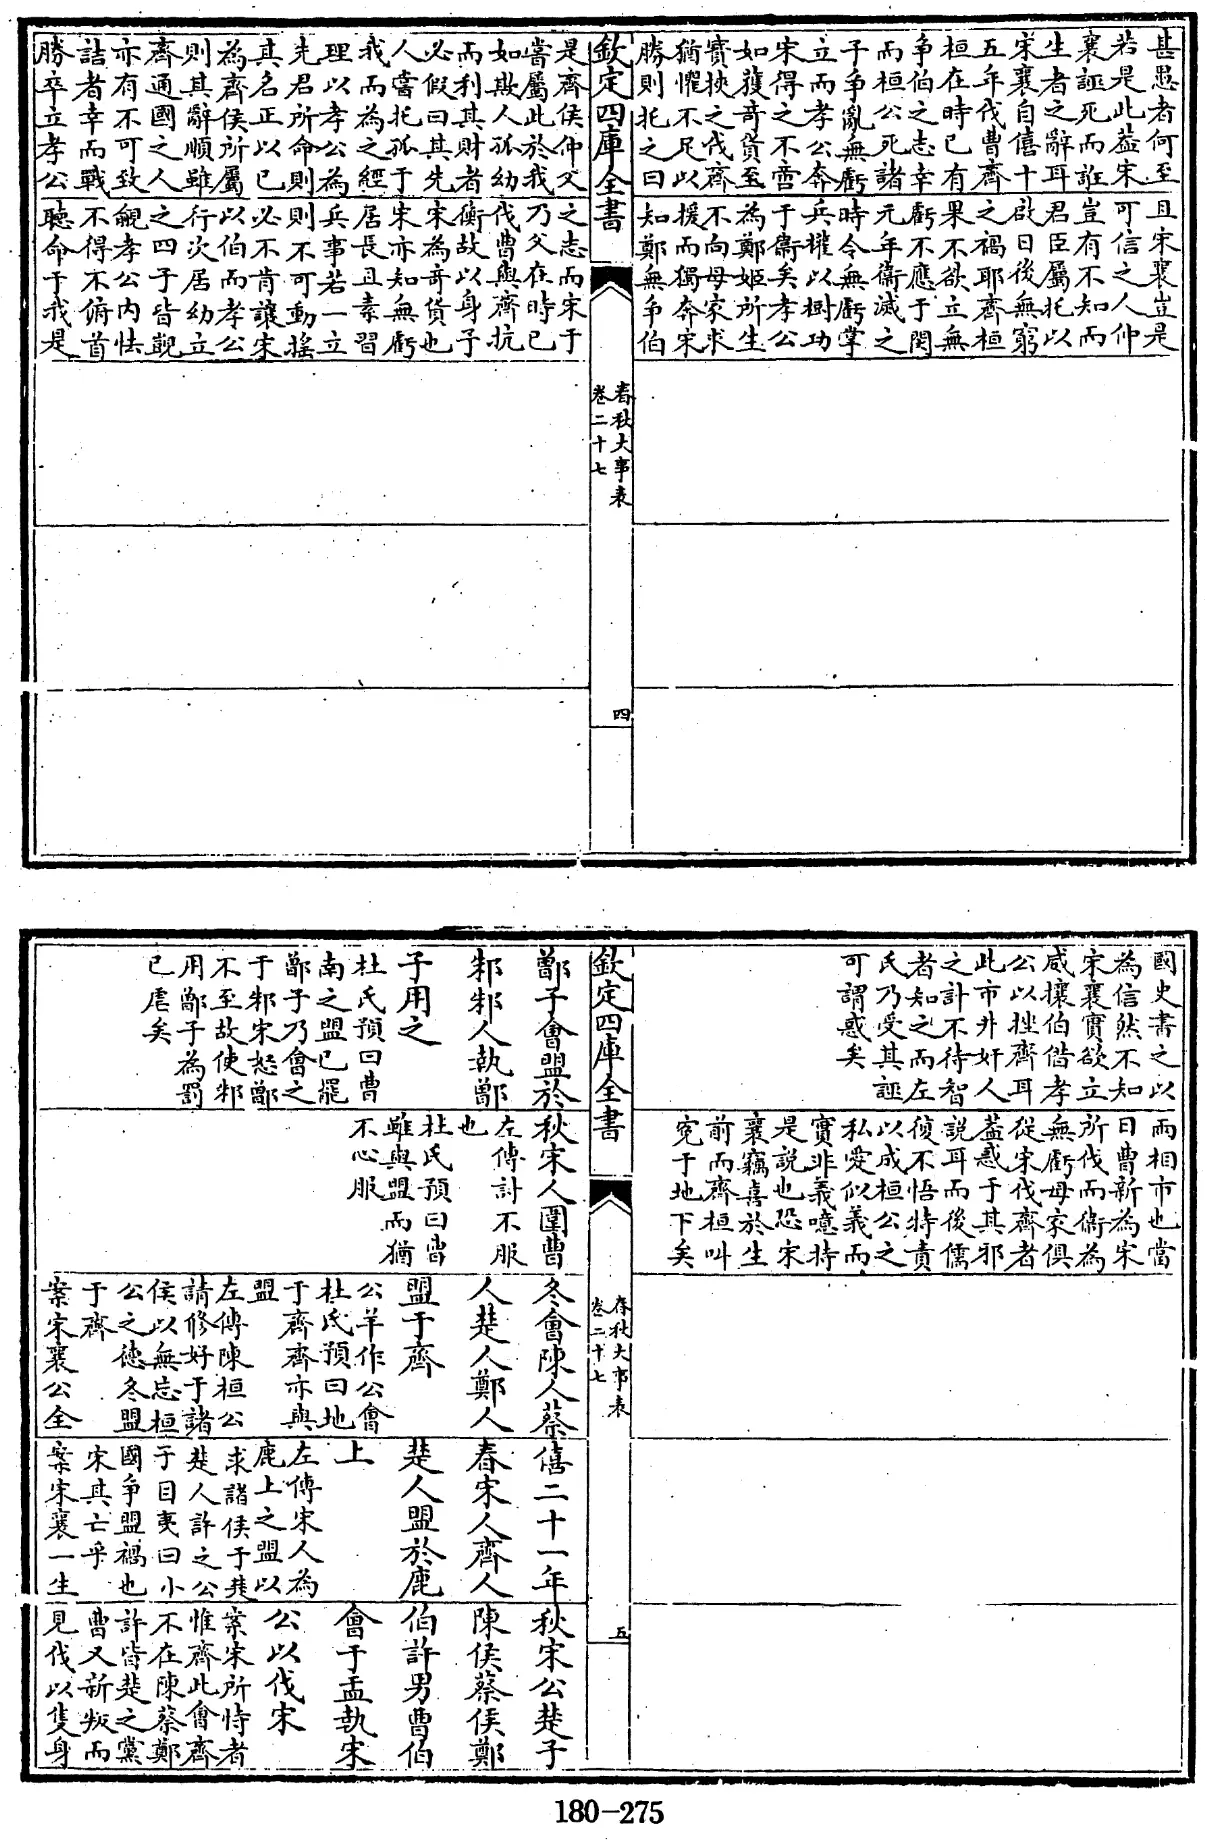 甚愚者何至
若是此葢宋
襄誣死而誑
生者之辭耳
宋襄自僖十
五年伐曹齊
桓在時已有
爭伯之志幸
而桓公死諸
子爭亂無虧
立而孝公奔
宋得之不啻
如獲奇貨至
實挾之伐齊
猶懼不足以
勝則托之曰
且宋襄豈是
可信之人仲
豈有不知而
君臣屬托以
啟日後無窮
之禍耶齊桓
果不欲立無
虧不應于閔
元年衛滅之
時令無虧掌
兵權以樹功
于衛矣孝公
為鄭姬所生
不向母家求
援而獨奔宋
知鄭無爭伯
欽定四庫全書
春秋大事表
卷二十七
四
是齊侯仲父
嘗屬此於我
如欺人孤幼
而利其財者
必假曰其先
人嘗托孤于
我而為之經
理以孝公為
先君所命則
其名正以已
為齊侯所屬
則其辭順雖
齊通國之人
亦有不可致
詰者幸而戰
勝卒立孝公
之志而宋于
乃父在時已
伐曹與齊抗
衡故以身子
宋為奇貨也
宋亦知無虧
居長且素習
兵事若一立
則不可動搖
必不肯讓宋
以伯而孝公
行次居幼立
之四子皆覬
覦孝公内怯
不得不俯首
聽命于我是
國史書之以
為信然不知
宋襄實欲立
威攘伯借孝
公以挫齊耳
此市井奸人
之計不待智
者知之而左
氏乃受其誣
可謂惑矣
而相市也當
日曹新為宋
所伐而衛為
無虧母家俱
從宋伐齊者
葢惑于其邪
說耳而後儒
復不悟特責
以成桓公之
私愛似義而
實非義噫持
是說也恐宋
襄竊喜於生
前而齊桓叫
寃于地下矣
欽定四庫全書
春秋大事表
卷二十七
五
鄫子會盟於
邾邾人執鄫
子用之
杜氏預曰曹
南之盟已罷
鄫子乃會之
于邾宋怒鄫
不至故使邾
用鄫子為罰
已虐矣
秋宋人圍曹
左傳討不服
也
杜氏預曰曹
雖與盟而猶
不心服
冬會陳人蔡
人楚人鄭人
盟于齊
公羊作公會
杜氏預曰地
于齊齊亦與
盟
左傳陳桓公
請修好于諸
侯以無忘桓
公之德冬盟
于齊
案宋襄公全
僖二十一年
春宋人齊人
楚人盟於鹿
上
左傳宋人為
鹿上之盟以
求諸侯于楚
楚人許之公
子目夷曰小
國爭盟禍也
宋其亡乎
案宋襄一生
秋宋公楚子
陳侯蔡侯鄭
伯許男曹伯
會于盂執宋
公以伐宋
案宋所恃者
惟齊此會齊
不在陳蔡鄭
許皆楚之黨
曹又新叛而
見伐以隻身
180-275